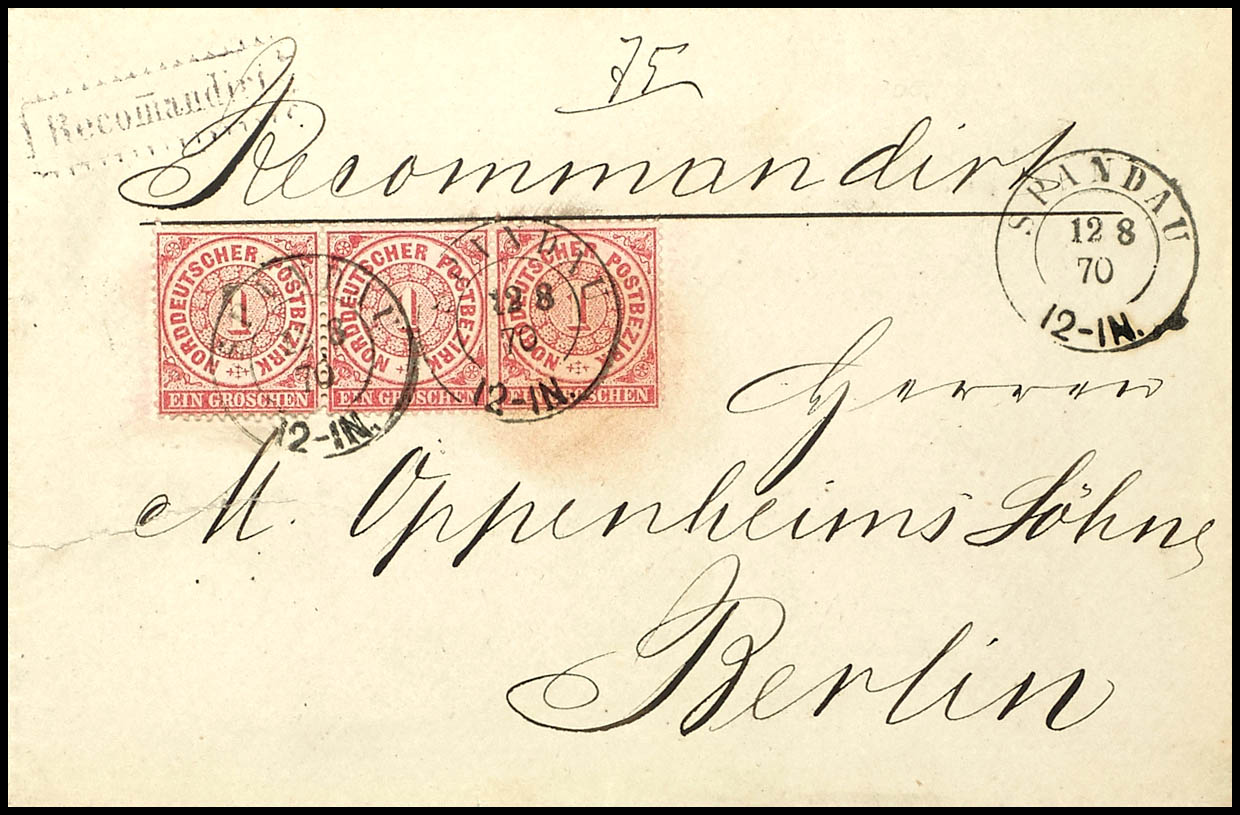 75
Recom̅andirt
Recommandirt
SPANDAU
12 8
70
12-1N.
NORDDEUTSCHER POSTBEZIRK
1
EIN GROSCHEN
8
70
12-1N.
NORDDEUTSCHER POSTBEZIRK
1
EIN GROSCHEN
SPANDAU
12 8
70
12-1N.
NORDDEUTSCHER POSTBEZIRK
1
EIN GROSCHEN
Herren
M. Oppenheims Söhne
Berlin